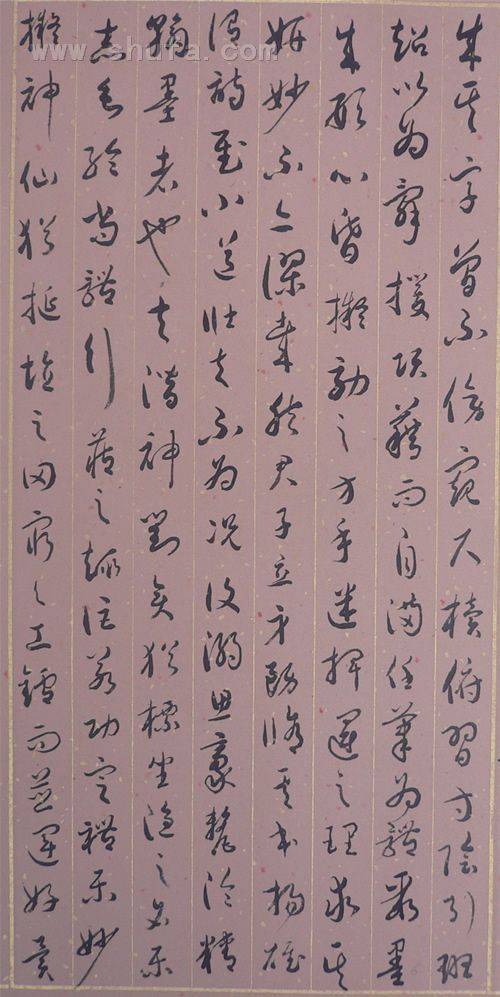 成其字曾不傍窺尺牘俯習寸陰引班
超以為辭援項籍而自滿任筆為體聚墨
成形心昏擬效之方手迷揮運之理求其
妍妙不亦謬哉然君子立身務脩其本揚雄
謂詩賦小道壯夫不為況復溺思豪氂淪精
翰墨者也夫潛神對奕猶標坐隱之名樂
志垂綸尚體行藏之趣詎若功定禮樂妙
擬神仙猶挺埴之罔窮与工鑪而並運好異